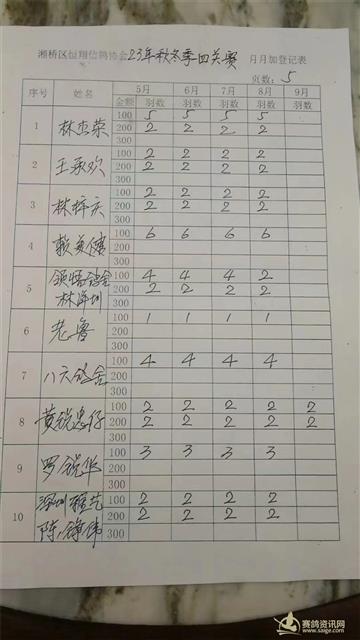 湘桥区恒翔信鸽协会23年秋冬季四关赛 月月加登记表
页数:5
序号 姓名 5月 6月 7月 8月 9月
金额 羽数 羽数 羽数 羽数 羽数
1 林杰荣 100 5 5 5 5
200 2 2 2 2
300
2 王承欢 100 2 2 2 2
200 2 2 2 2
300
3 林梓庆 100 2 2 2 2
200 2 2 2 2
300
4 100 6 6 6 6
200
300
5 100 4 4 4 2
200 2 2 2 2
300
6 老鲁 100 1 1 1 1
200
300
7 八六鸽舍 100 4 4 4 4
200
300
8 黄锐忠仔 100 2 2 2 2 2
200 2 2 2 2 2
300
9 罗锐华 100 3 3 3 3
200
300
10 深圳 100 2 2 2 2
200 2 2 2 2
300
赛鸽资讯网
www.saige.com